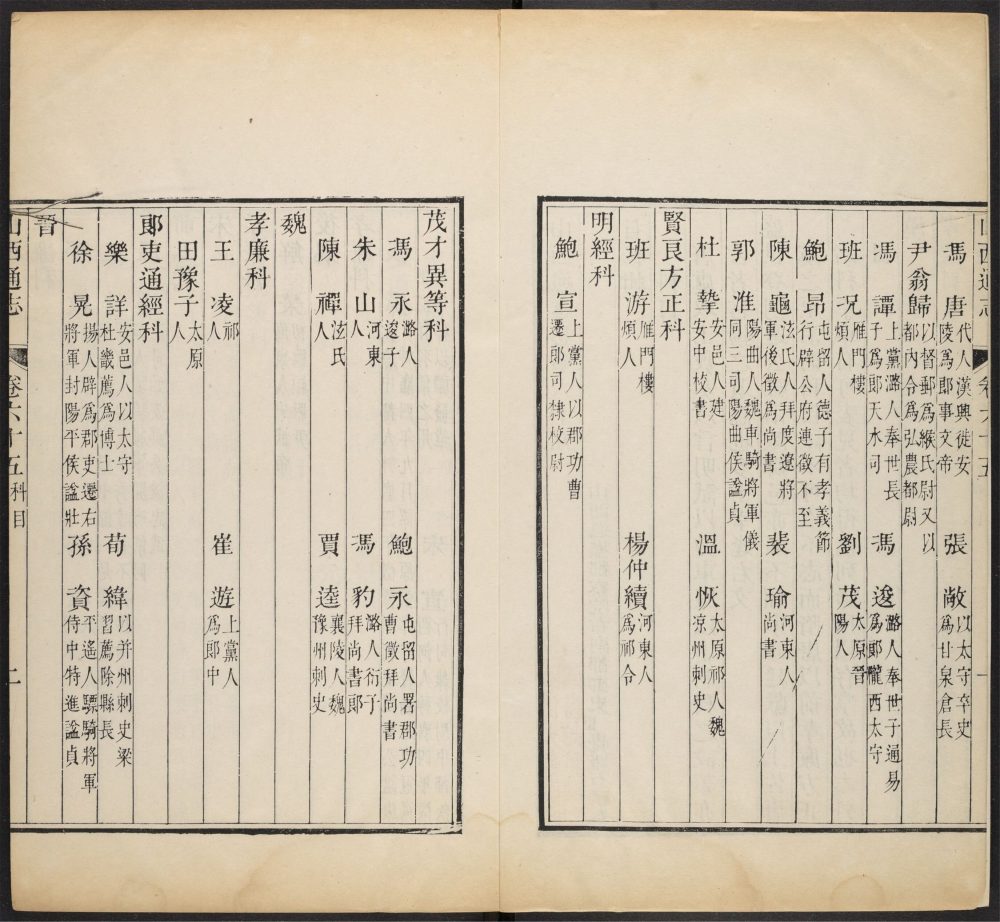 山西通志 卷六十五 一
馮唐 代人漢興徙安陵爲郎事文帝 張敞 以太守卒史爲甘泉倉長
尹翁歸 以督郵爲緱氏尉又以都內令爲弘農都尉
馮譚 上黨潞人奉世長子爲郎天水司 馮逡 潞人奉世子通易爲郎隴西太守
班況 雁門樓煩人 劉茂 太原晉陽人
鮑昂 屯留人德子有孝義節行辟公府連徵不至
陳龜 泫氏人拜度遼將軍後徵爲尚書 裴瑜 河東人尚書
郭淮 陽曲人魏車騎將軍儀同三司陽曲侯諡貞
杜摯 安邑人建安中校書 溫恢 太原祁人魏涼州刺史
賢良方正科
班游 雁門樓煩人 楊仲續 河東人爲祁令
明經科
鮑宣 上黨人以郡功曹遷司隸校尉
茂才異等科
馮永 潞人逡子 鮑永 屯留人署郡功曹徵拜尚書
朱山 河東人 馮豹 潞人衍子拜尚書郎
陳禪 泫氏人 賈逵 襄陵人魏豫州刺史
魏
孝廉科
王凌 祁人 崔遊 上黨人爲郎中
田豫子 太原人
郎吏通經科
樂詳 安邑人以太守杜畿薦爲博士 荀緯 以并州刺史梁習薦除縣長
徐晃 揚人辟爲郡吏遷右將軍封陽平侯諡壯 孫資 平遙人驃騎將軍侍中特進諡貞
晉
山西通志 卷六十五 科目 二